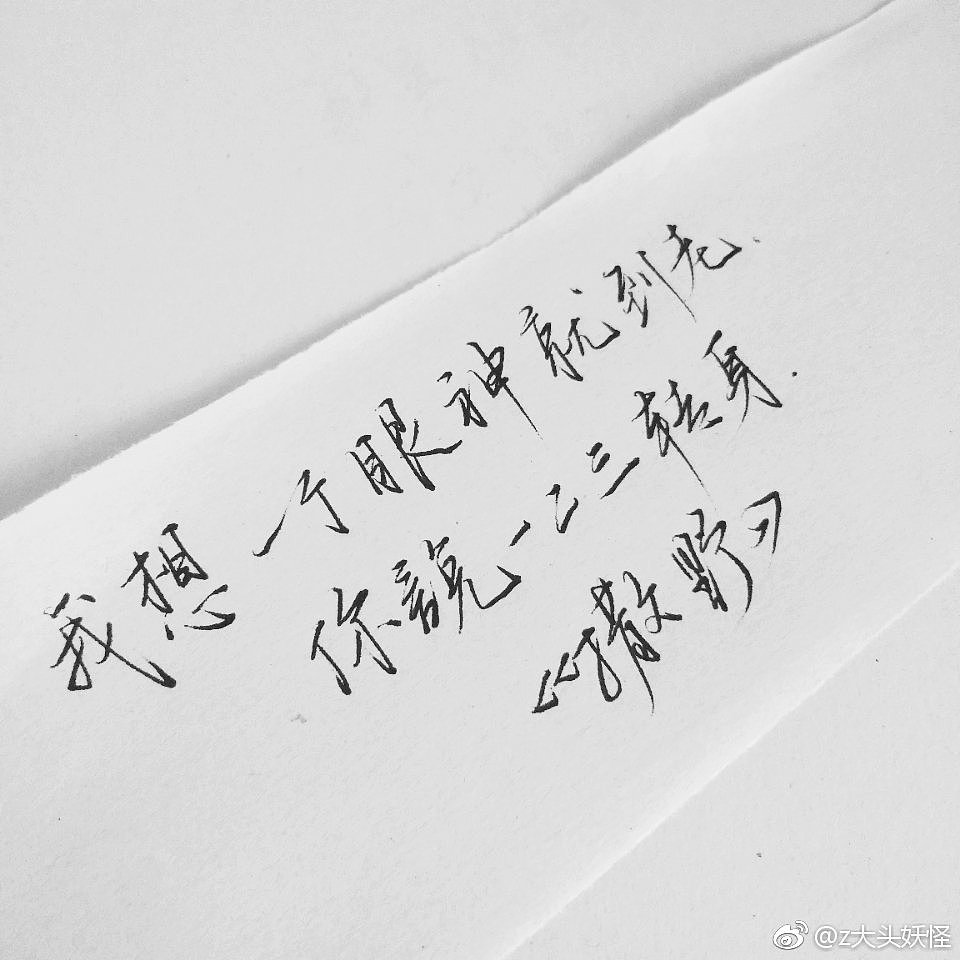 我想一个眼神就到老.
你說一二三转身.
《撒野》
@z大头妖怪